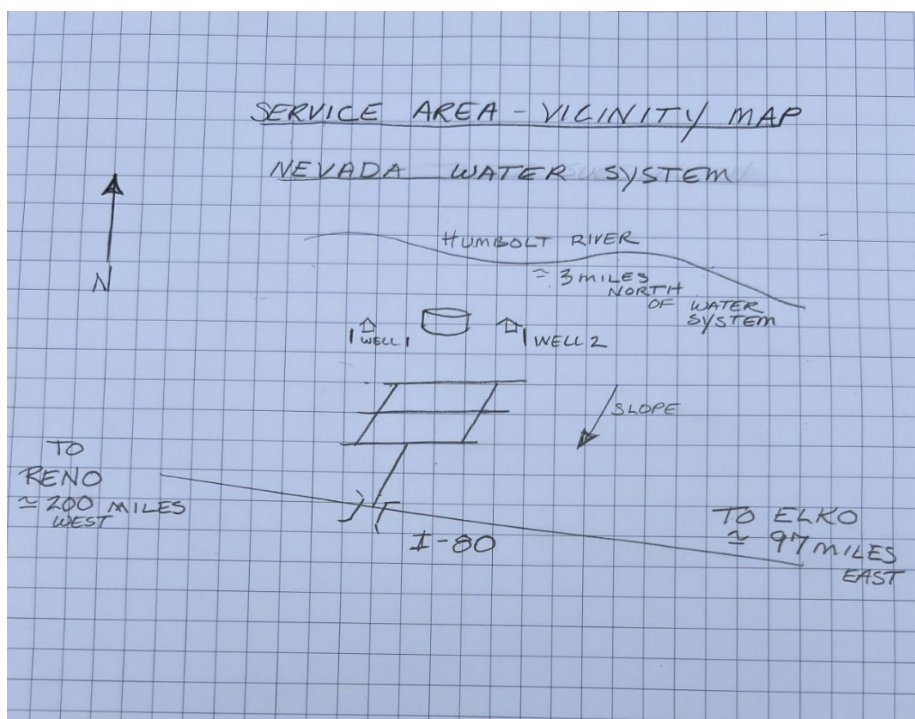 SERVICE AREA - VICINITY MAP
NEVADA WATER SYSTEM
N
HUMBOLT RIVER
≈ 3 MILES
NORTH
OF WATER
SYSTEM
WELL 1
WELL 2
SLOPE
TO
RENO
≃ 200 MILES
WEST
I-80
TO ELKO
≃ 97 MILES
EAST